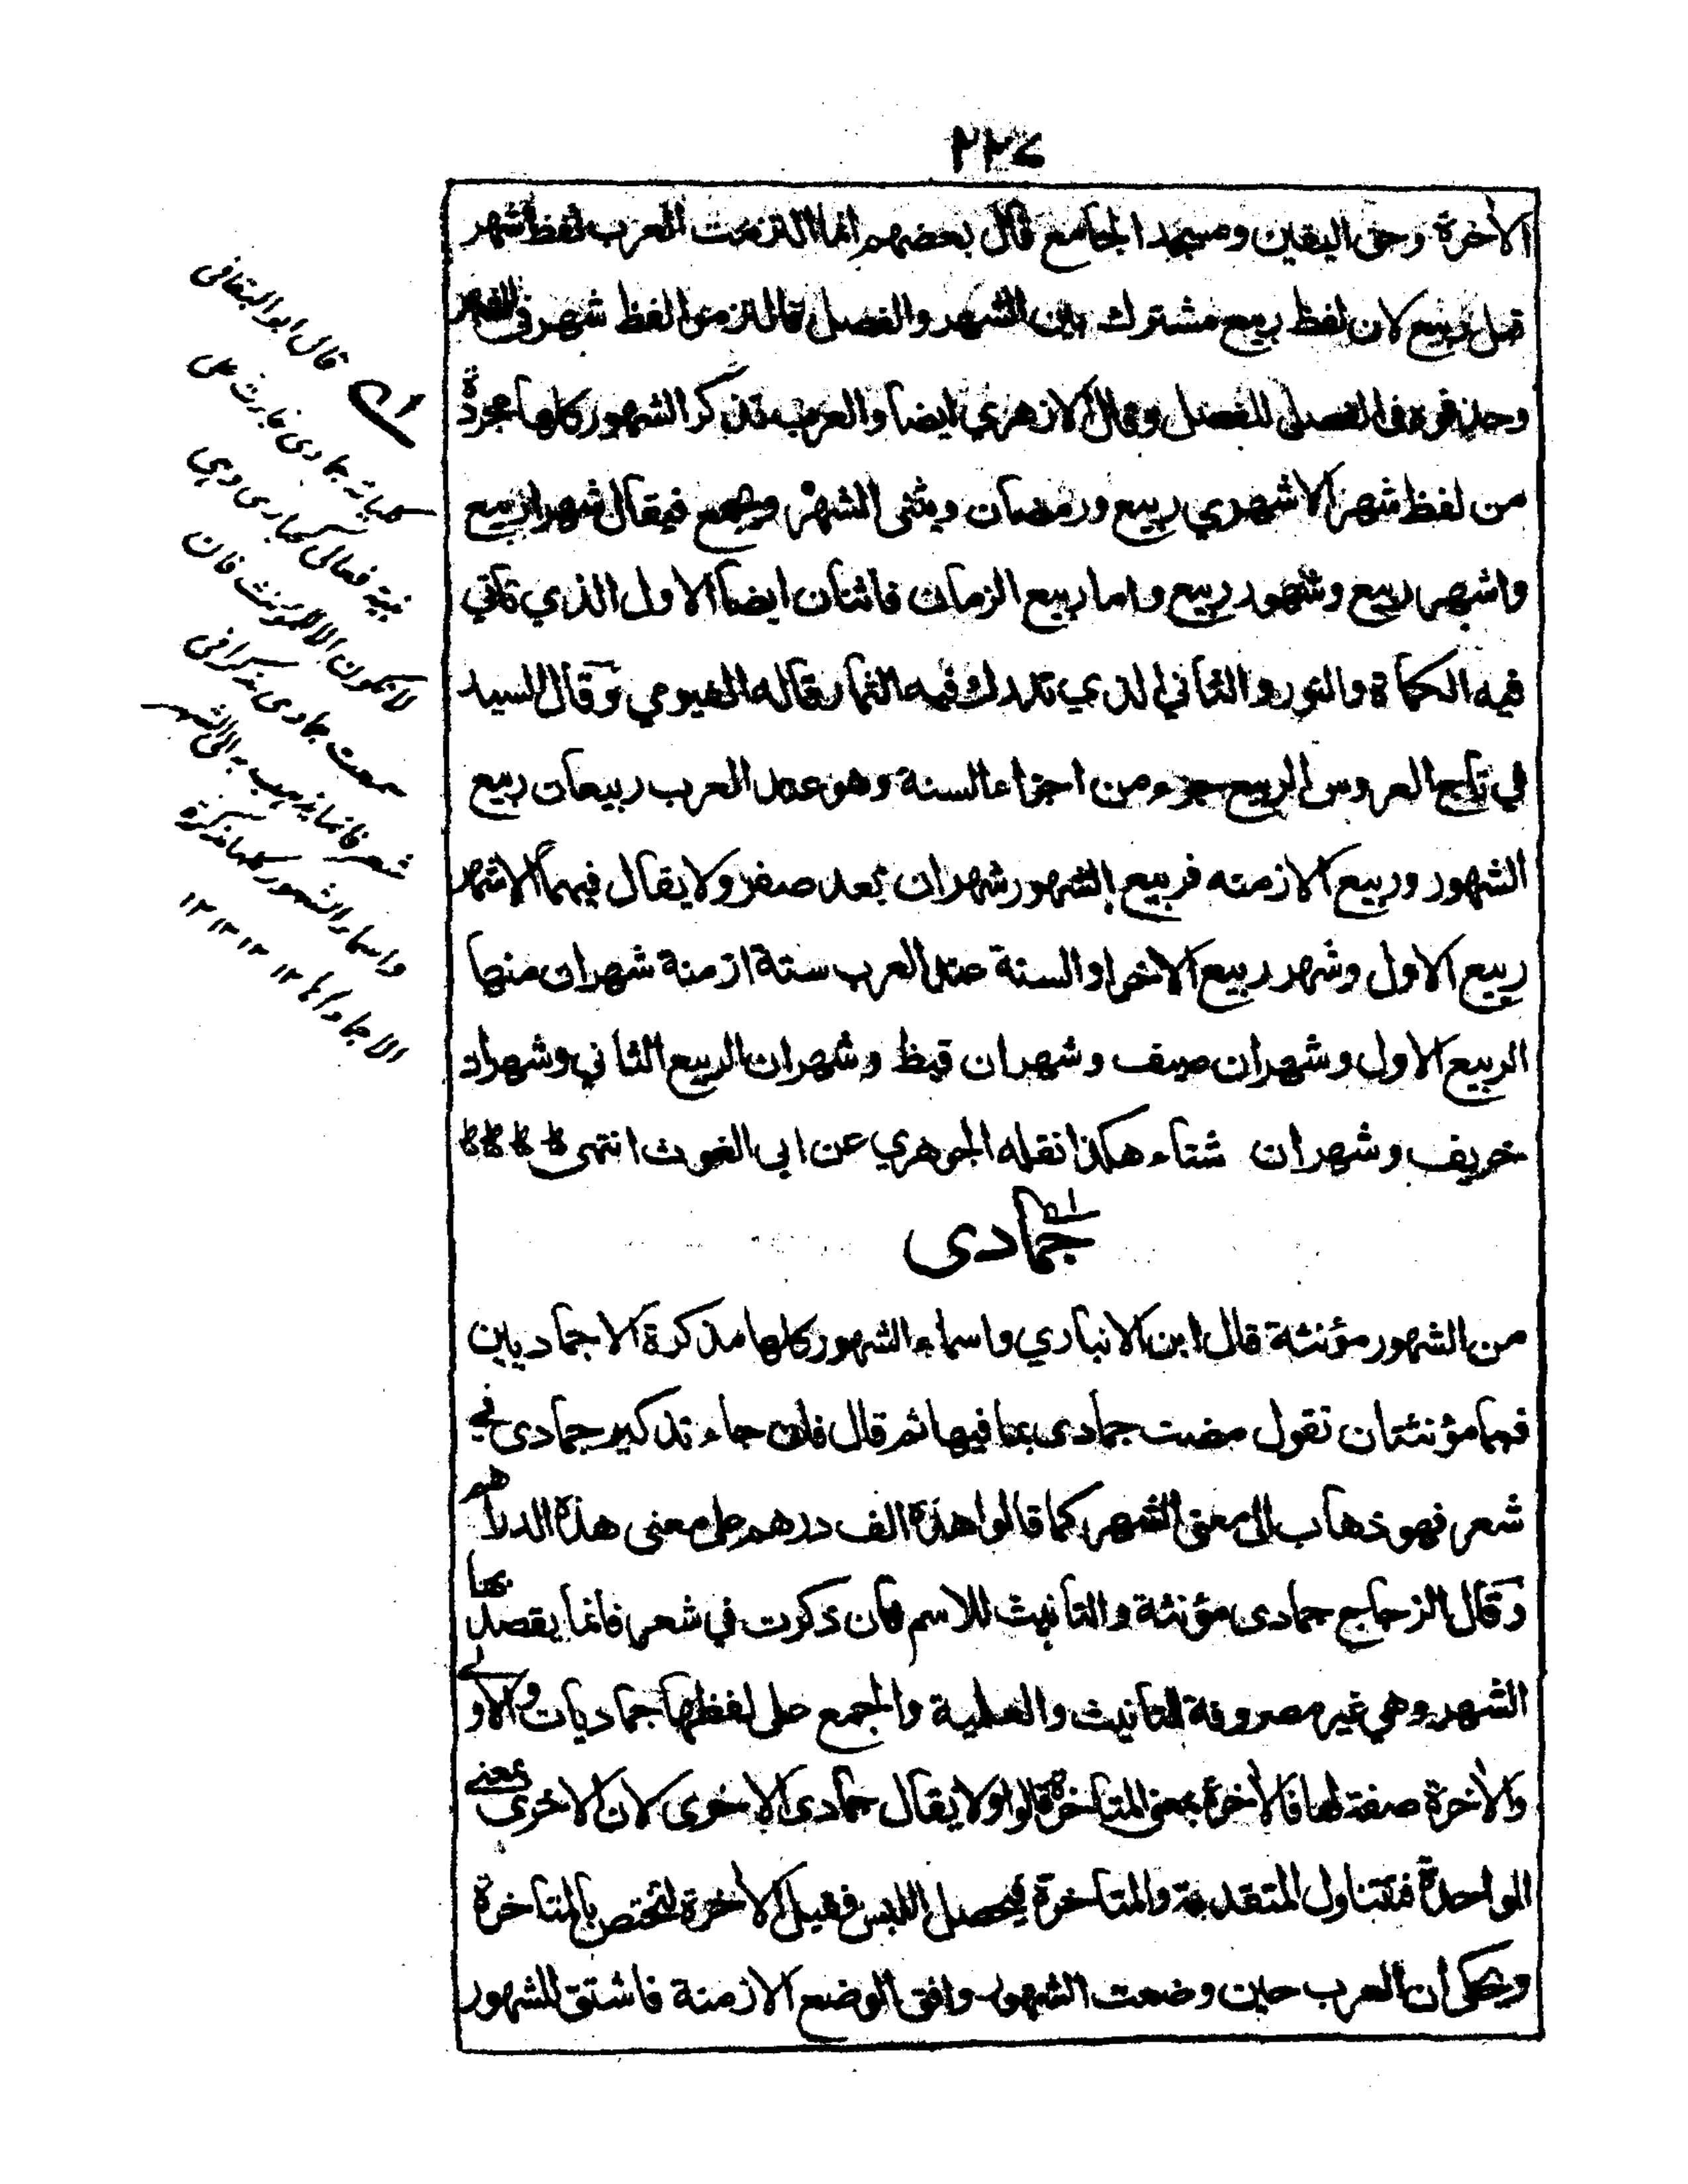 ٢٢٧
الآخرة وحق اليقين ومسجد الجامع قال بعضهم انما التزمت العرب لفظ شهر
قبل ربيع لان لفظ ربيع مشترك بين الشهر والفصل فالتزموا لفظ شهر في الشهر
وحذفوه في الفصل للفصل وقال الازهري ايضا والعرب تذكر الشهور كلها مجردة
من لفظ شهر الا شهري ربيع ورمضان ويثنى الشهر ويجمع فيقال شهرا ربيع
واشهر ربيع وشهور ربيع واما ربيع الزمان فاثنان ايضا الاول الذي تأتي
فيه الكمأة والنور والثاني الذي تدرك فيه الثمار قاله الفيومي وقال السيد
في تاج العروس الربيع جزء من اجزاء السنة وهو عند العرب ربيعان ربيع
الشهور وربيع الازمنه فربيع الشهور شهران بعد صفر ولا يقال فيهما الا شهر
ربيع الاول وشهر ربيع الآخر او السنة عند العرب ستة ازمنة شهران منها
الربيع الاول وشهران صيف وشهران قيظ وشهران الربيع الثاني وشهران
خريف وشهران شتاء هكذا نقله الجوهري عن ابي الغوث انتهى
جمادى
من الشهور مؤنثة قال ابن الانباري واسماء الشهور كلها مذكرة الا جماديين
فهما مؤنثتان تقول مضت جمادى بما فيها ثم قال فان جاء تذكير جمادى في
شعر فهو ذهاب الى معنى الشهر كما قالوا هذه الف درهم على معنى هذه الدراهم
وقال الزجاج جمادى مؤنثة والتأنيث للاسم فان ذكرت في شعر فانما يقصد بها
الشهر وهي غير مصروفة للتأنيث والعلمية والجمع على لفظها جماديات والاولى
والآخرة صفة لها فالآخرة بمعنى المتاخرة قالوا ولا يقال جمادى الاخرى لان الاخرى بمعنى
الواحدة فتتناول المتقدمة والمتاخرة فيحصل اللبس فقيل الآخرة لتختص بالمتاخرة
ويحكى ان العرب حين وضعت الشهور وافق الوضع الازمنة فاشتق للشهور
قال ابو البقا في
جمادى على
فعالى كسمارى وهي
لا تكون الا للمؤنث فان
سمعت جمادى مذكرا في
شعر فانما يذهب به الى الشهر
واسماء الشهور كلها مذكرة
الا جمادى ١٢ ١٢ ١٢ ١٢